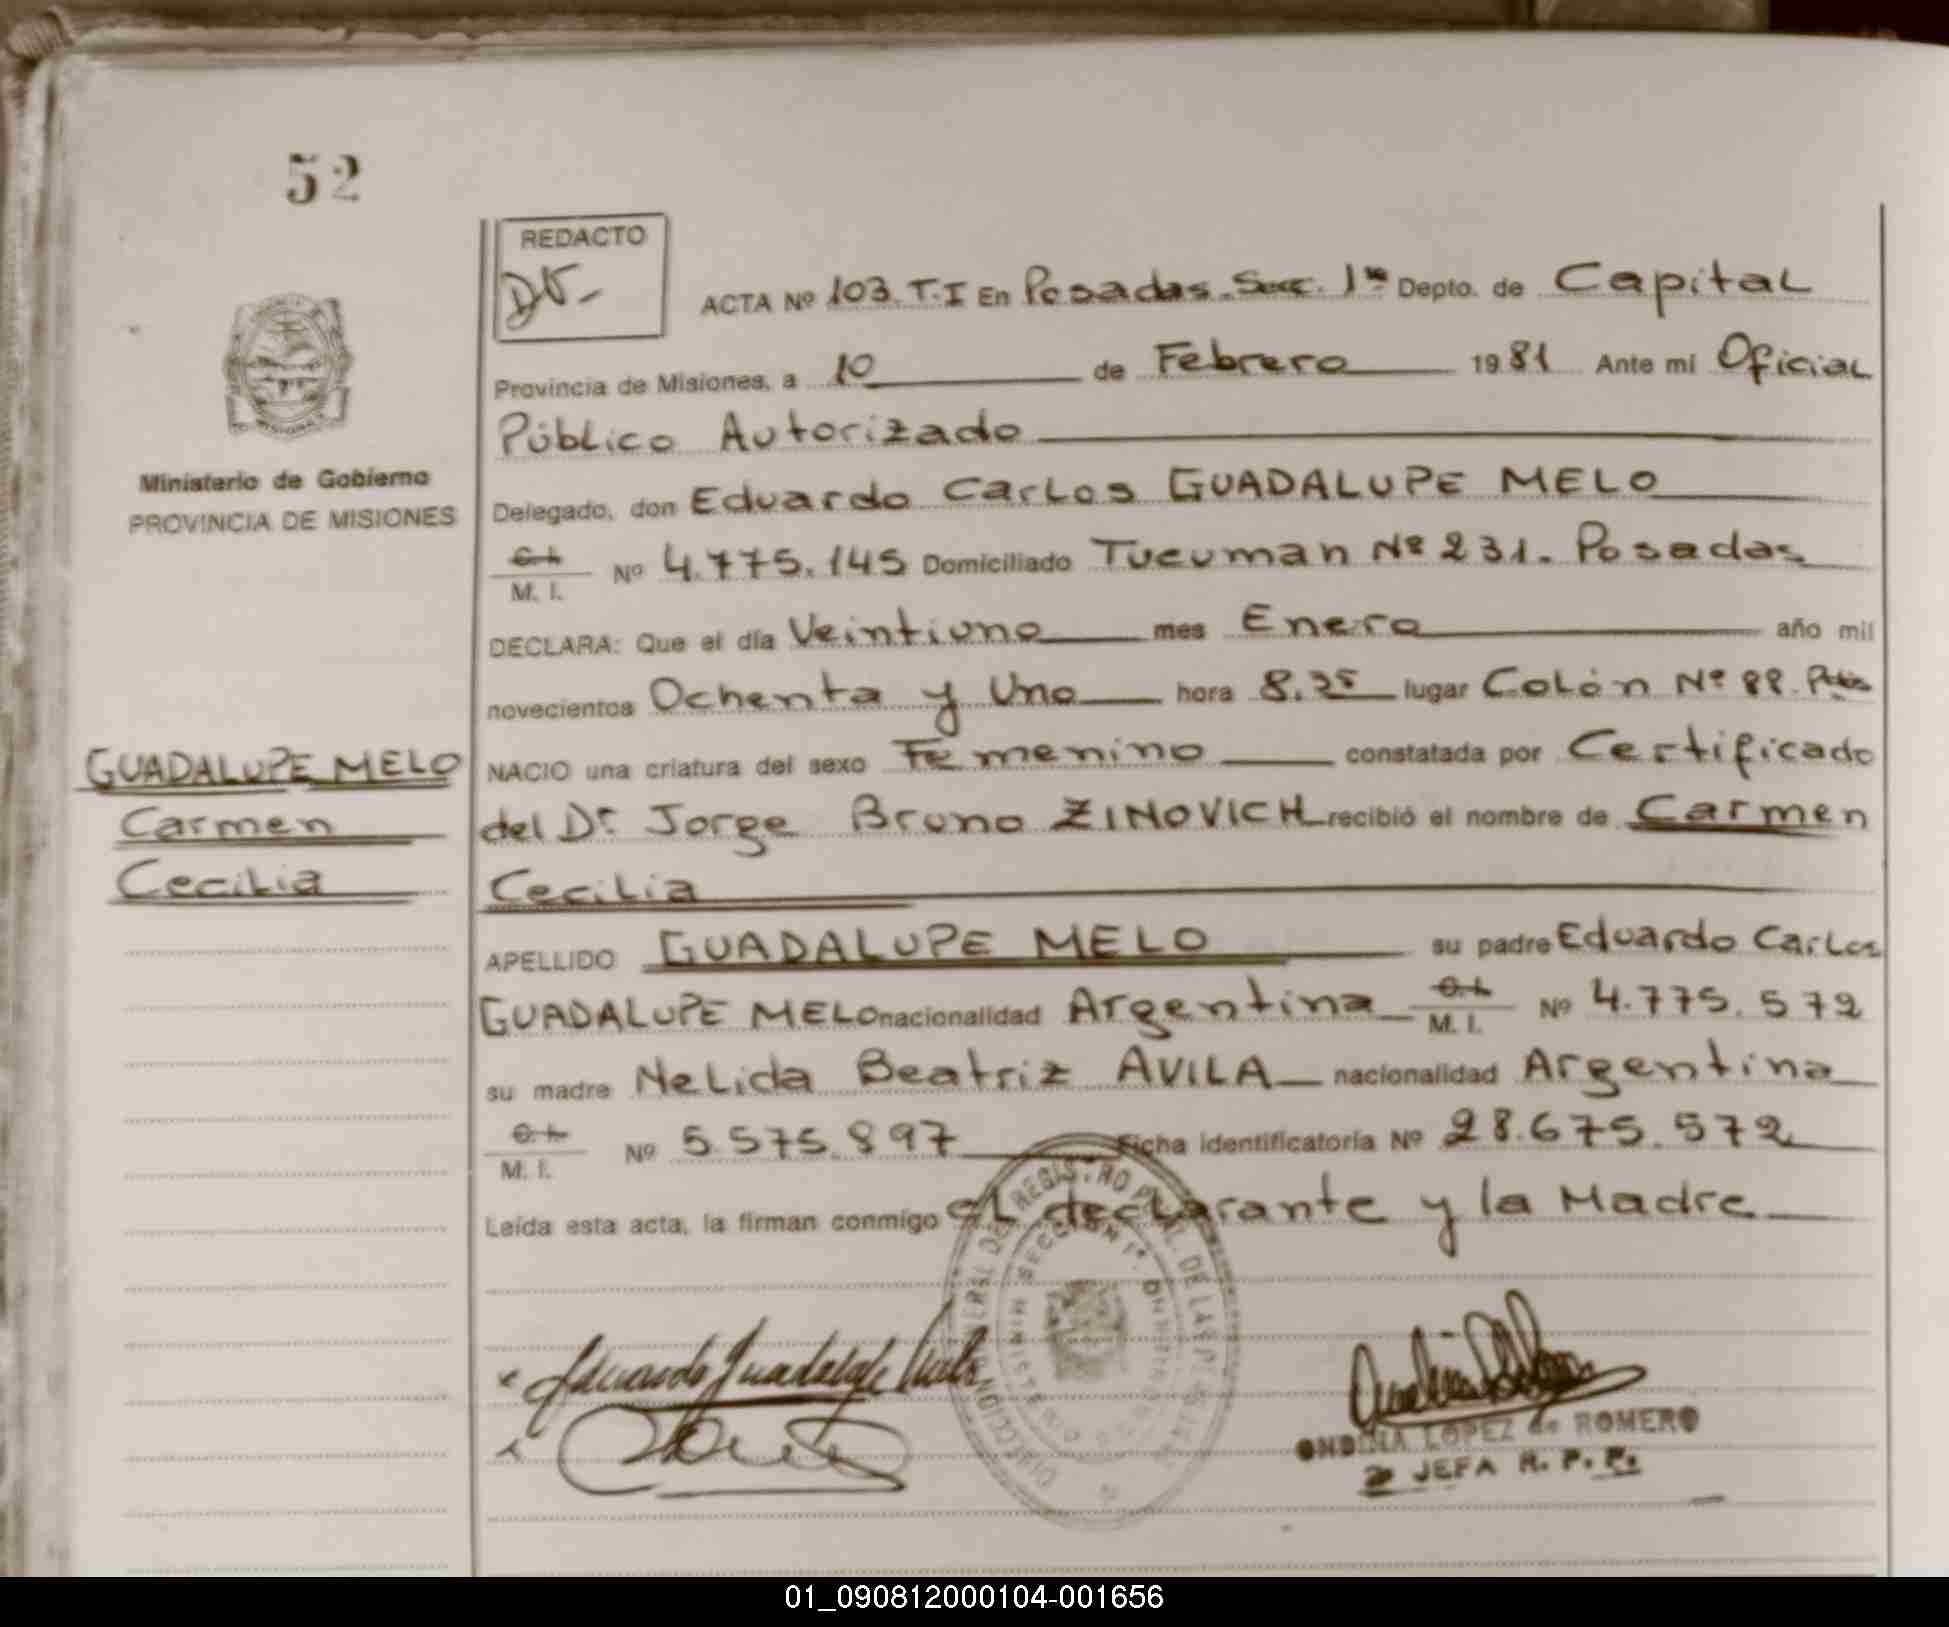 52
REDACTO
ACTA Nº 103. T.I En Posadas. Secc. 1ª Depto. de Capital
Provincia de Misiones, a 10 de Febrero 1981 Ante mi Oficial
Público Autorizado
Delegado, don Eduardo Carlos GUADALUPE MELO
C.I. M. I. Nº 4.775.145 Domiciliado Tucuman Nº 231. Posadas
DECLARA: Que el día Veintiuno mes Enero año mil
novecientos Ochenta y Uno hora 8.35 lugar Colón Nº 88. Pdas
NACIO una criatura del sexo Femenino constatada por Certificado
del Dr. Jorge Bruno ZINOVICH recibió el nombre de Carmen
Cecilia
APELLIDO GUADALUPE MELO su padre Eduardo Carlos
GUADALUPE MELO nacionalidad Argentina C.I. M. I. Nº 4.775.572
su madre Nelida Beatriz AVILA nacionalidad Argentina
C.I. M. I. Nº 5.575.897 Ficha identificatoria Nº 28.675.572
Leída esta acta, la firman conmigo el declarante y la Madre
Ministerio de Gobierno
PROVINCIA DE MISIONES
GUADALUPE MELO
Carmen
Cecilia
Eduardo Guadalupe Melo
ONDINA LOPEZ de ROMERO
2ª JEFA R. P. P.
01_090812000104-001656